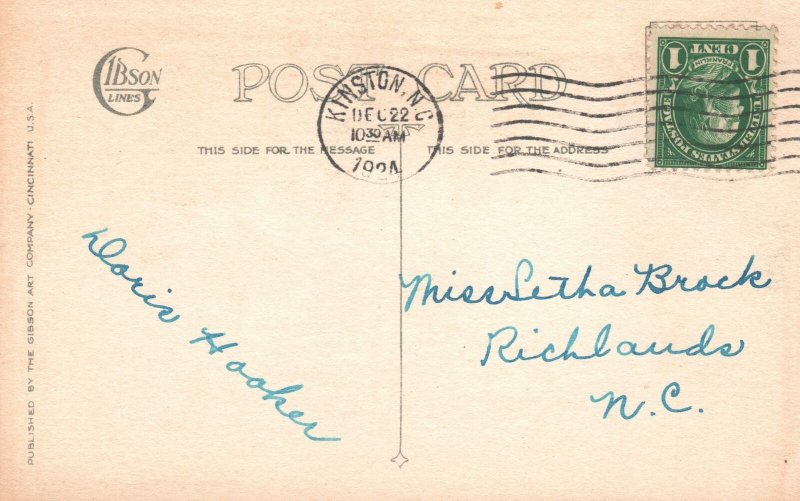 GIBSON
LINES
POST CARD
KINSTON, N.C.
DEC 22
10 30 AM
1924
THIS SIDE FOR THE MESSAGE
THIS SIDE FOR THE ADDRESS
1 CENT 1
FRANKLIN
UNITED STATES POSTAGE
Doris Hooker
Miss Letha Brock
Richlands
N.C.
PUBLISHED BY THE GIBSON ART COMPANY · CINCINNATI U.S.A.